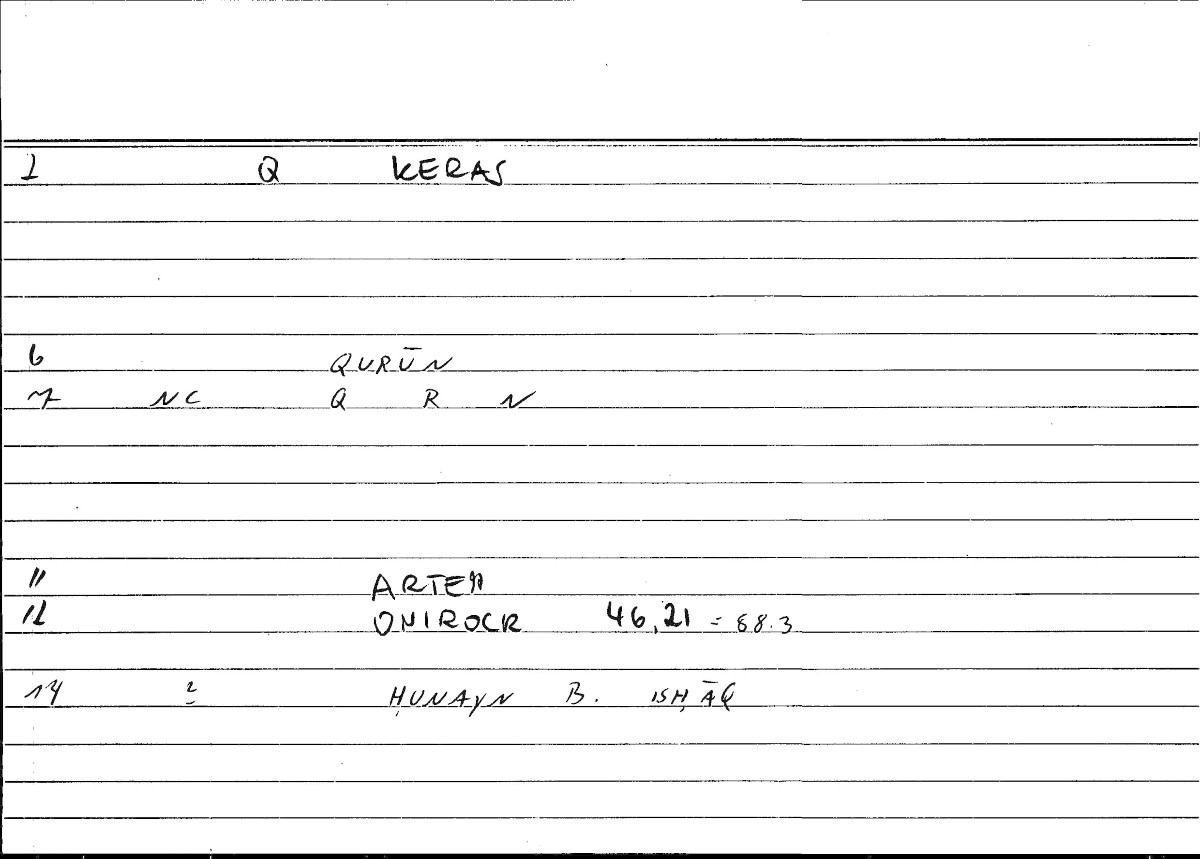 1 Q KERAS
6 QURŪN
7 NC Q R N
11 ARTEM
12 ONIROCR 46,21 = 88.3
14 2 ḤUNAYN B. ISḤĀQ